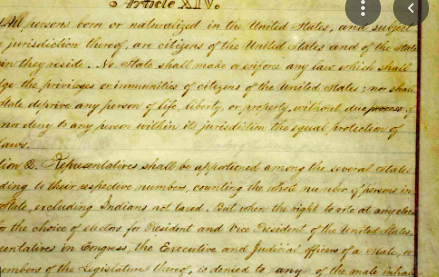 Article XIV.
All persons born or naturalized in the United States, and subject
jurisdiction thereof, are citizens of the United States and of the State
in they reside. No State shall make or enforce any law which shall
ge the privileges or immunities of citizens of the United States; nor shall
State deprive any person of life, liberty, or property, without due process of
nor deny to any person within its jurisdiction the equal protection of
laws.
tion 2. Representatives shall be apportioned among the several States
ding to their respective numbers, counting the whole number of persons in
State, excluding Indians not taxed. But when the right to vote at any elec
r the choice of electors for President and Vice President of the United States,
sentatives in Congress, the Executive and Judicial officers of a State, or
embers of the Legislature thereof, is denied to any of the male inhab